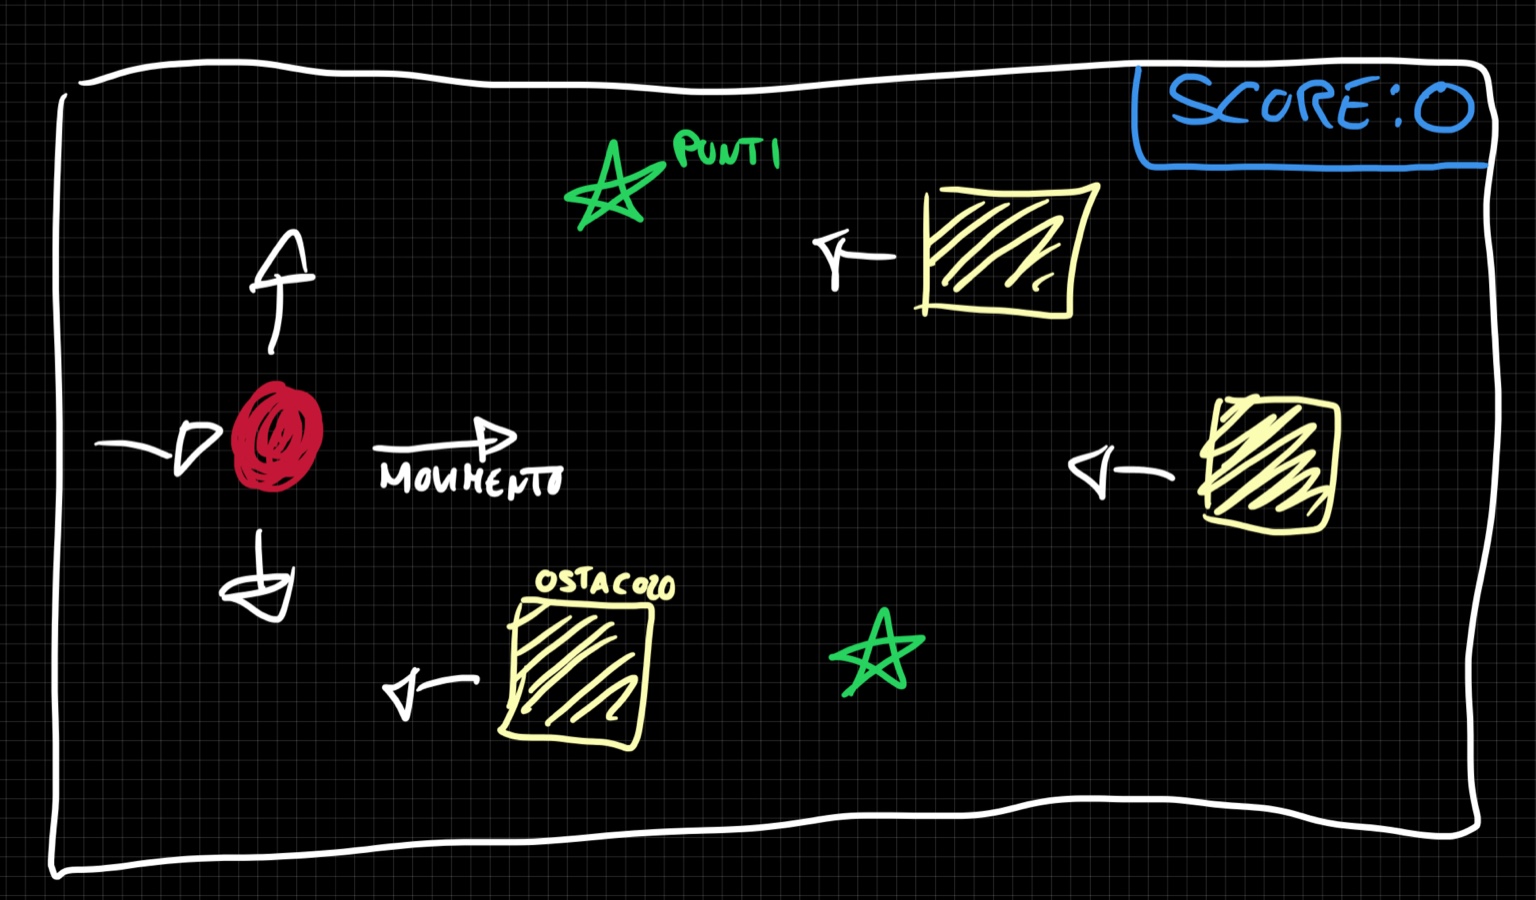 SCORE: 0
PUNTI
MOVIMENTO
OSTACOLO